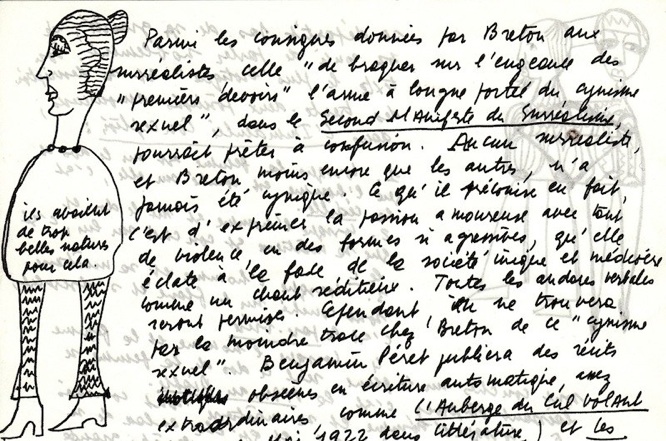 Parmi les consignes données par Breton aux
surréalistes celle "de braquer sur l'engeance des
"premiers devoirs" l'arme à longue portée du cynisme
sexuel", dans le Second Manifeste du Surréalisme,
pourrait prêter à confusion. Aucun surréaliste,
et Breton moins encore que les autres, n'a
jamais été cynique. Ce qu'il préconise en fait,
c'est d'exprimer la passion amoureuse avec tant
de violence, en des formes si agressives, qu'elle
éclate à la face de la société inique et médiocre
comme un chant séditieux. Toutes les audaces verbales
seront permises. Cependant, on ne trouvera
pas la moindre trace chez Breton de ce "cynisme
sexuel". Benjamin Péret publiera des récits
obscènes en écriture automatique, assez
extraordinaires comme (l'Auberge du Cul Volant
1922 dans Littérature) et les
ils avaient
de trop
belles natures
pour cela.